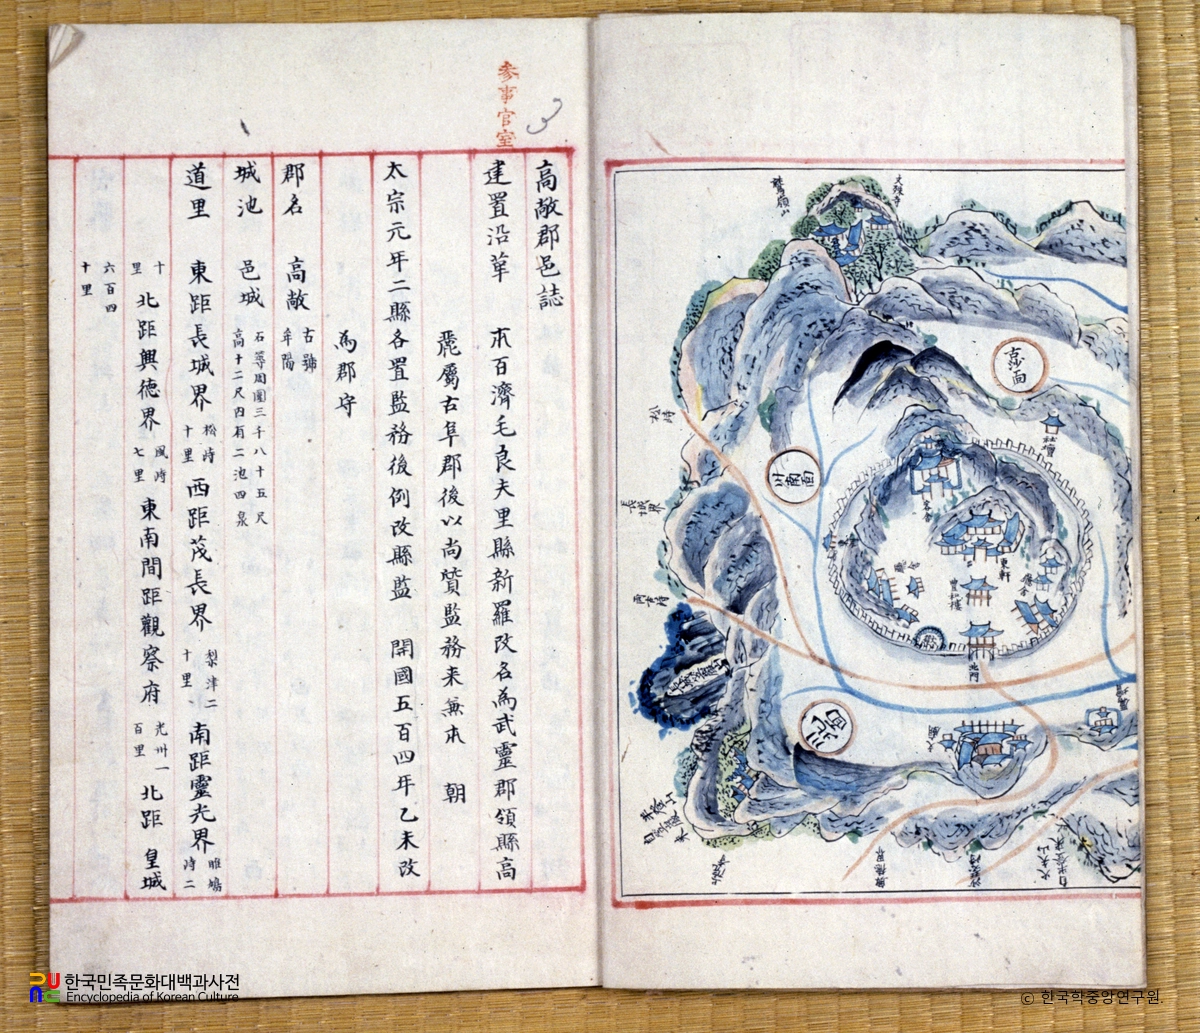 參事官室
3
高敞郡邑誌
建置沿革 本百濟毛良夫里縣新羅改名爲武靈郡領縣高
麗屬古阜郡後以尚質監務來兼本 朝
太宗元年二縣各置監務後例改縣監 開國五百四年乙未改
爲郡守
郡名 高敞 古號 牟陽
城池 邑城 石築周圍三千八十五尺 高十二尺內有二池四泉
道里 東距長城界 松峙 十里 西距茂長界 梨津二 十里 南距靈光界 雎鳩 峙二
十 里 北距興德界 風峙 七里 東南間距觀察府 光州一 百里 北距 皇城
六百四
十里
鷲嶺山
大殊寺
古沙面
川南面
川北面
松峙
長城界
社壇
客舍
東軒
豊和樓
北門
文廟
興德界
火矢山
한국민족문화대백과사전
Encyclopedia of Korean Culture
ⓒ 한국학중앙연구원.